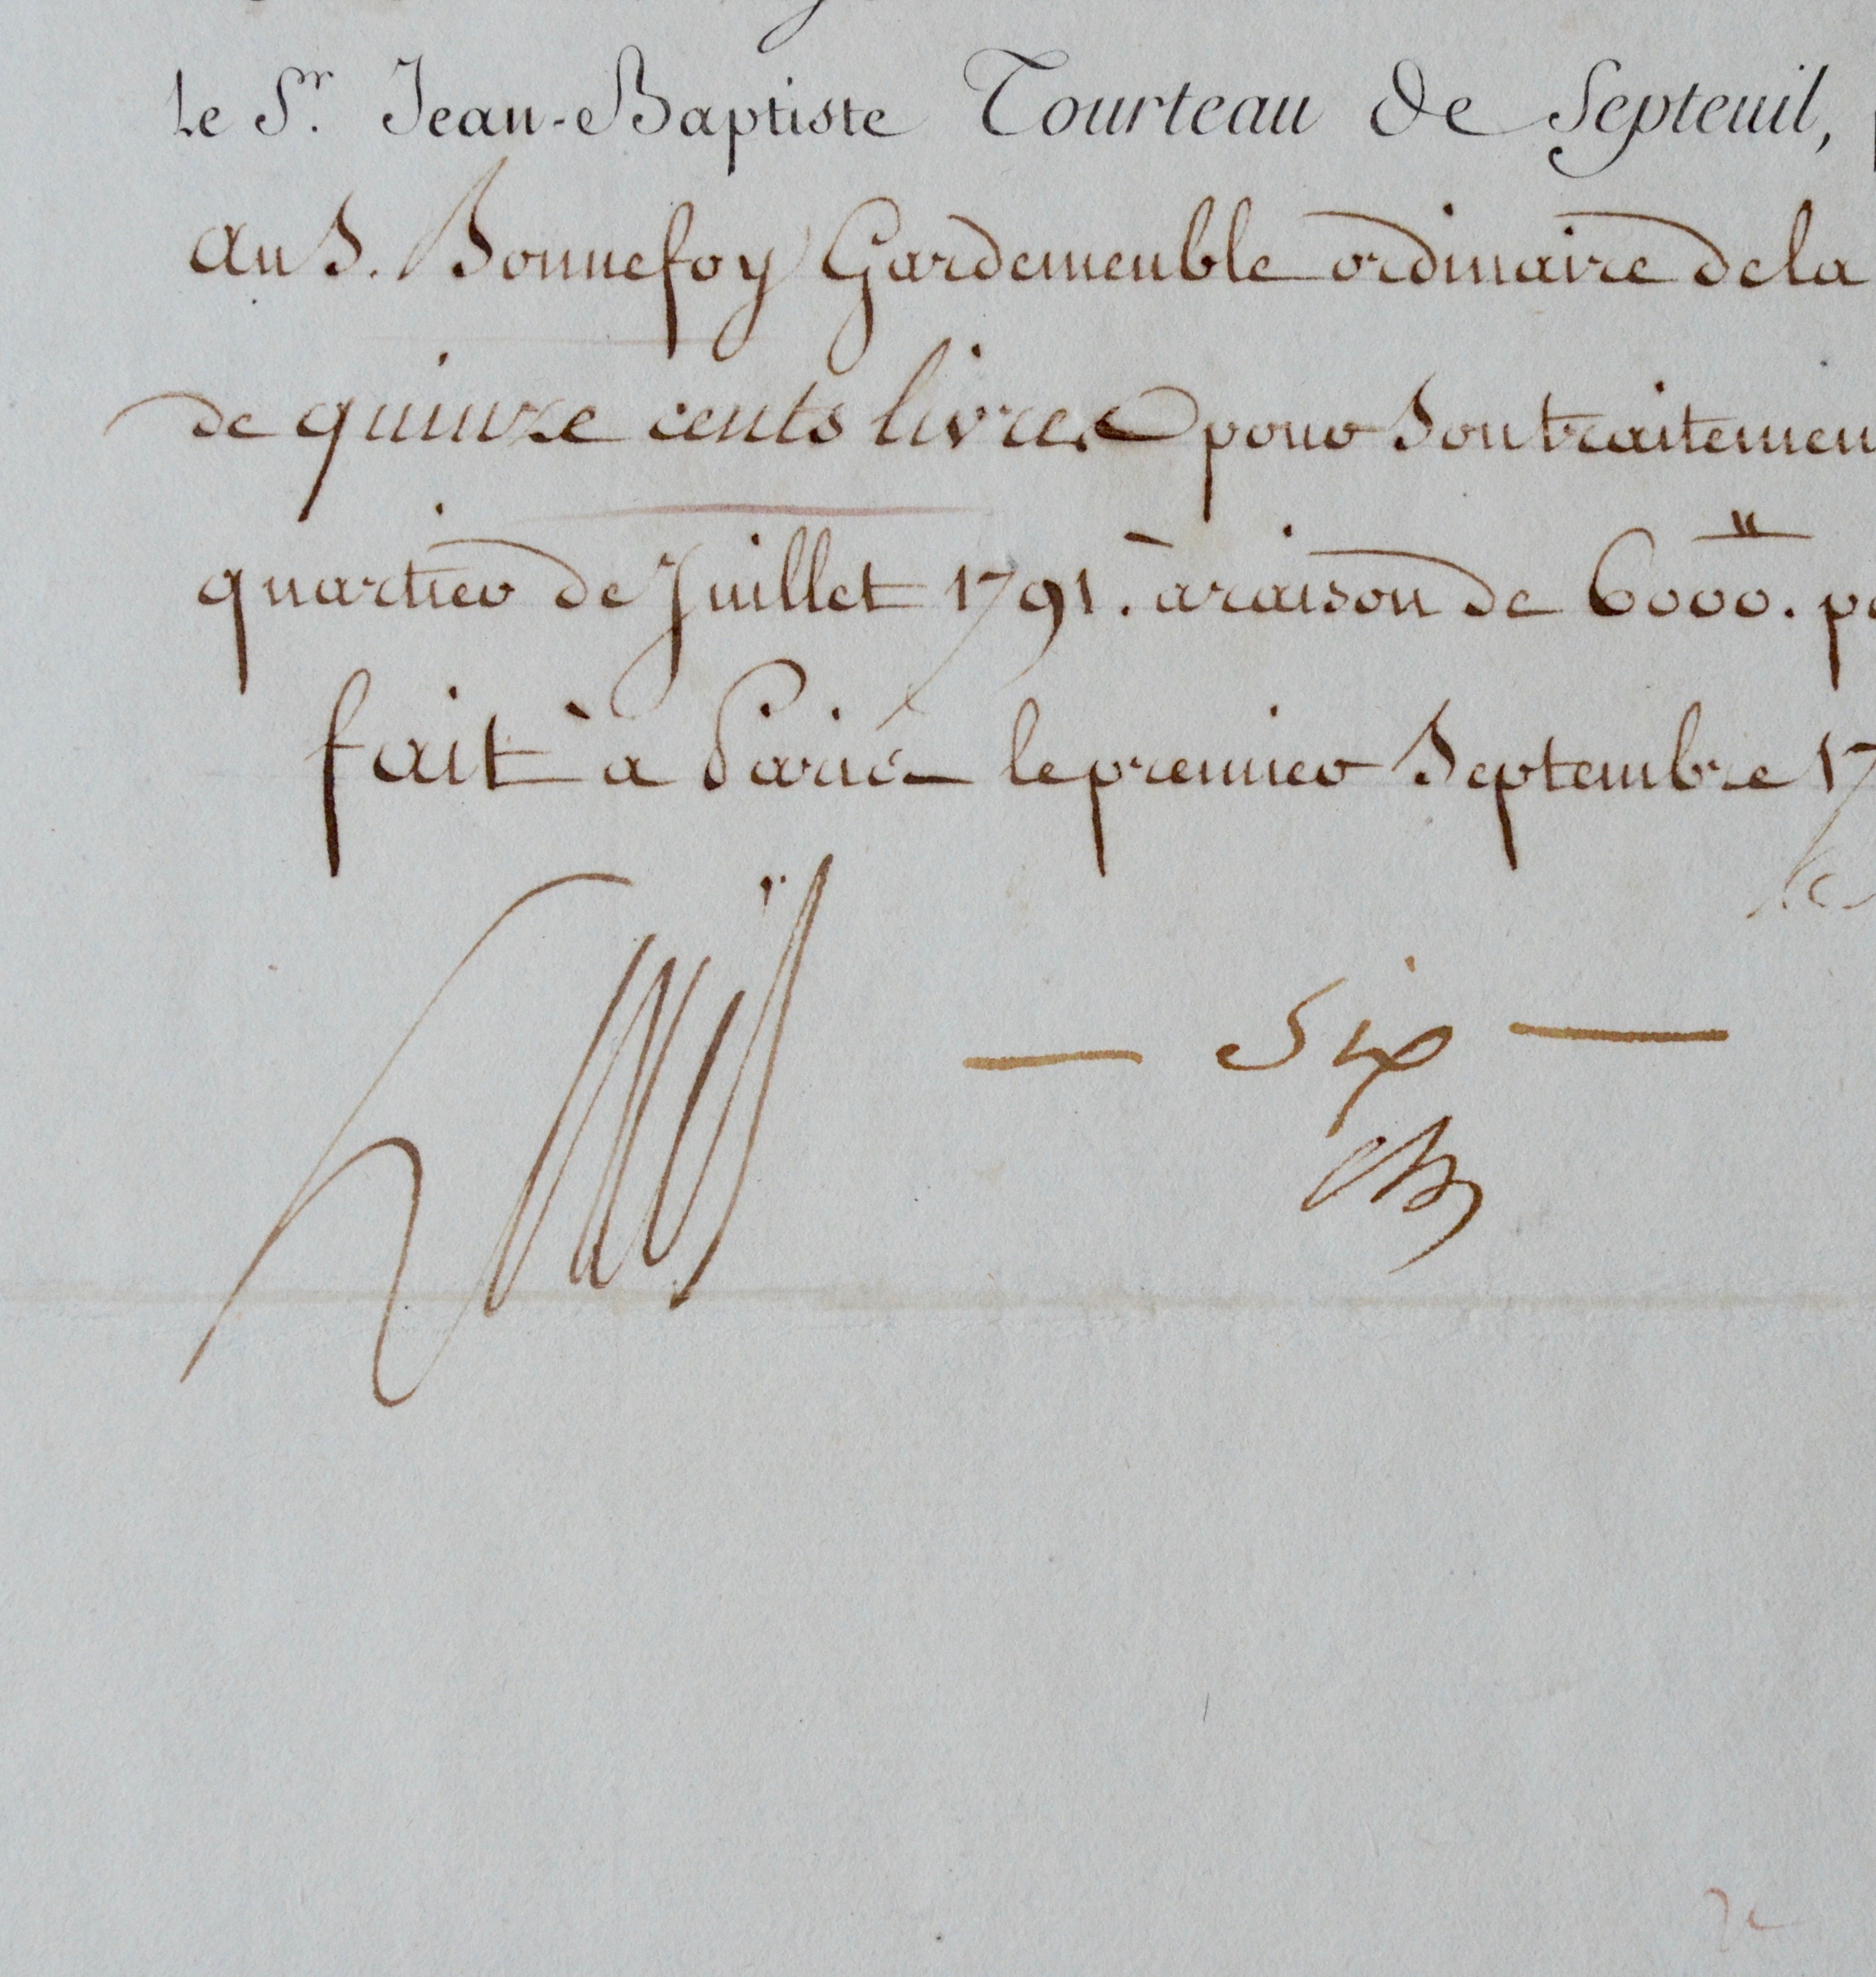 Le Sr. Jean-Baptiste Tourteau de Septeuil,
Au S. Bonnefoy Gardemeuble ordinaire dela
de quinze cents livres pour son traitemen
quartier de Juillet 1791. à raison de 6000.
fait à Paris le premier Septembre 17
— Six —